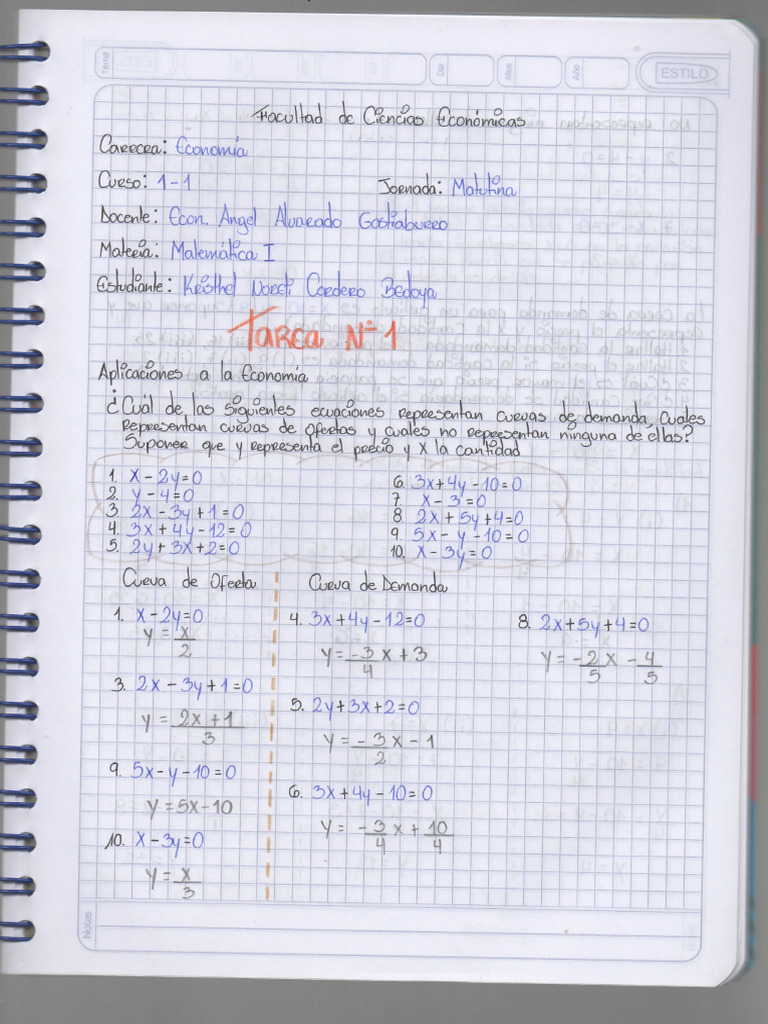 Tema
Día
Mes
Año
ESTILO
Facultad de Ciencias Económicas
Carrera: Economía
Curso: 1-1 Jornada: Matutina
Docente: Econ. Angel Alvarado Gastiaburro
Materia: Matemática I
Estudiante: Kristhel Cordero Bedoya
Tarea N° 1
Aplicaciones a la Economía
¿Cuál de las siguientes ecuaciones representan curvas de demanda, cuales
representan curvas de ofertas y cuales no representan ninguna de ellas?
Suponer que y representa el precio y x la cantidad
1. x - 2y = 0
2. y - 4 = 0
3. 2x - 3y + 1 = 0
4. 3x + 4y - 12 = 0
5. 2y + 3x + 2 = 0
6. 3x + 4y - 10 = 0
7. x - 3 = 0
8. 2x + 5y + 4 = 0
9. 5x - y - 10 = 0
10. x - 3y = 0
Curva de Oferta
1. x - 2y = 0
y = x/2
3. 2x - 3y + 1 = 0
y = 2x + 1/3
9. 5x - y - 10 = 0
y = 5x - 10
10. x - 3y = 0
y = x/3
Curva de Demanda
4. 3x + 4y - 12 = 0
y = -3/4 x + 3
5. 2y + 3x + 2 = 0
y = -3/2 x - 1
6. 3x + 4y - 10 = 0
y = -3/4 x + 10/4
8. 2x + 5y + 4 = 0
y = -2/5 x - 4/5
Notas